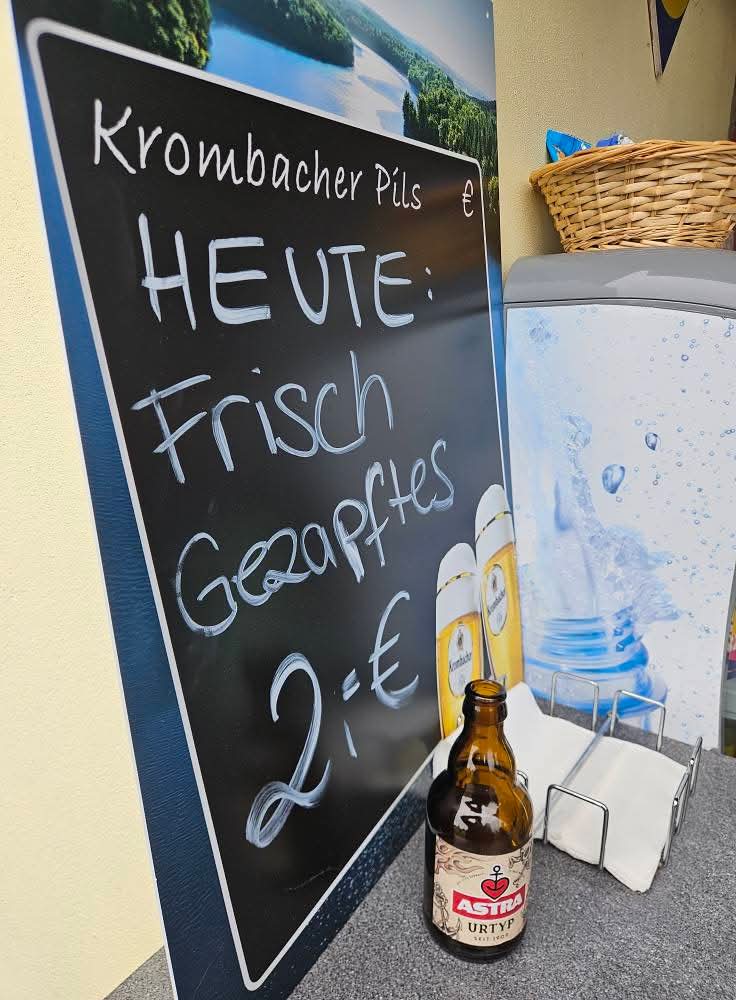 Krombacher Pils €
HEUTE:
Frisch
Gezapftes
2,- €
Krombacher
Krombacher
ASTRA
URTYP
SEIT 1909